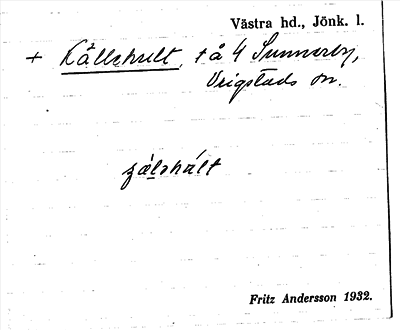 Västra hd., Jönk. l.
+ Källshult, t å 4 Sunnerby,
Vrigstads sn.
Fritz Andersson 1932.